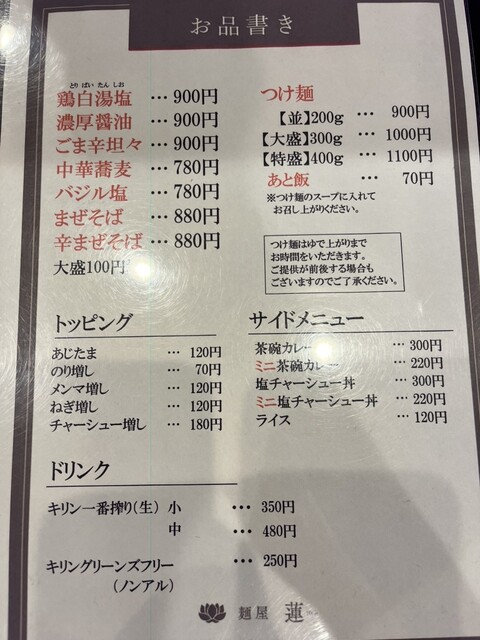 お品書き
とり ぱい たん しお
鶏白湯塩 … 900円
濃厚醤油 … 900円
ごま辛坦々 … 900円
中華蕎麦 … 780円
バジル塩 … 780円
まぜそば … 880円
辛まぜそば … 880円
大盛100円
つけ麺
【並】200g … 900円
【大盛】300g … 1000円
【特盛】400g … 1100円
あと飯 … 70円
※つけ麺のスープに入れて
お召し上がりください。
つけ麺はゆで上がりまで
お時間をいただきます。
ご提供が前後する場合も
ございますのでご了承ください。
トッピング
あじたま … 120円
のり増し … 70円
メンマ増し … 120円
ねぎ増し … 120円
チャーシュー増し … 180円
サイドメニュー
茶碗カレー … 300円
ミニ茶碗カレー … 220円
塩チャーシュー丼 … 300円
ミニ塩チャーシュー丼 … 220円
ライス … 120円
ドリンク
キリン一番搾り(生) 小 … 350円
中 … 480円
キリングリーンズフリー … 250円
(ノンアル)
麺屋 蓮